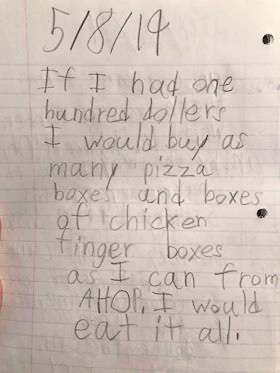 5/8/14
If I had one
hundred dollers
I would buy as
many pizza
boxes and boxes
of chicken
finger boxes
as I can from
AHOP. I would
eat it all.